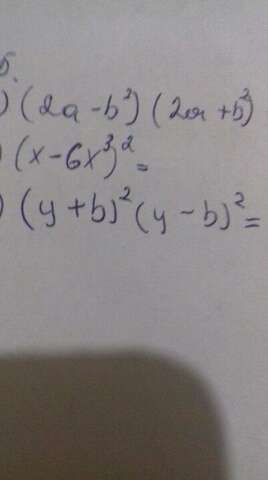 5.
) (2a - b²) (2a + b²)
) (x - 6x³)² =
) (y + b)² (y - b)² =